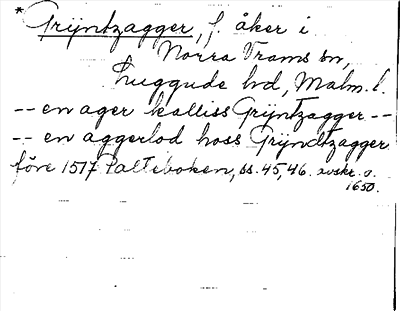 * Grÿntzagger, f. åker i
Norra Vrams sn,
Luggude hd, Malm. l.
-- en ager kalliss Grÿntzagger --
-- en aggerlod hoss Grÿndtzagger
före 1517 Palteboken, ss. 45, 46. avskr. o.
1650.